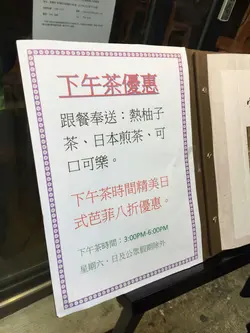 下午茶優惠
跟餐奉送：熱柚子
茶、日本煎茶、可
口可樂。
下午茶時間精美日
式芭菲八折優惠。
下午茶時間：3:00PM-6:00PM
星期六、日及公眾假期除外